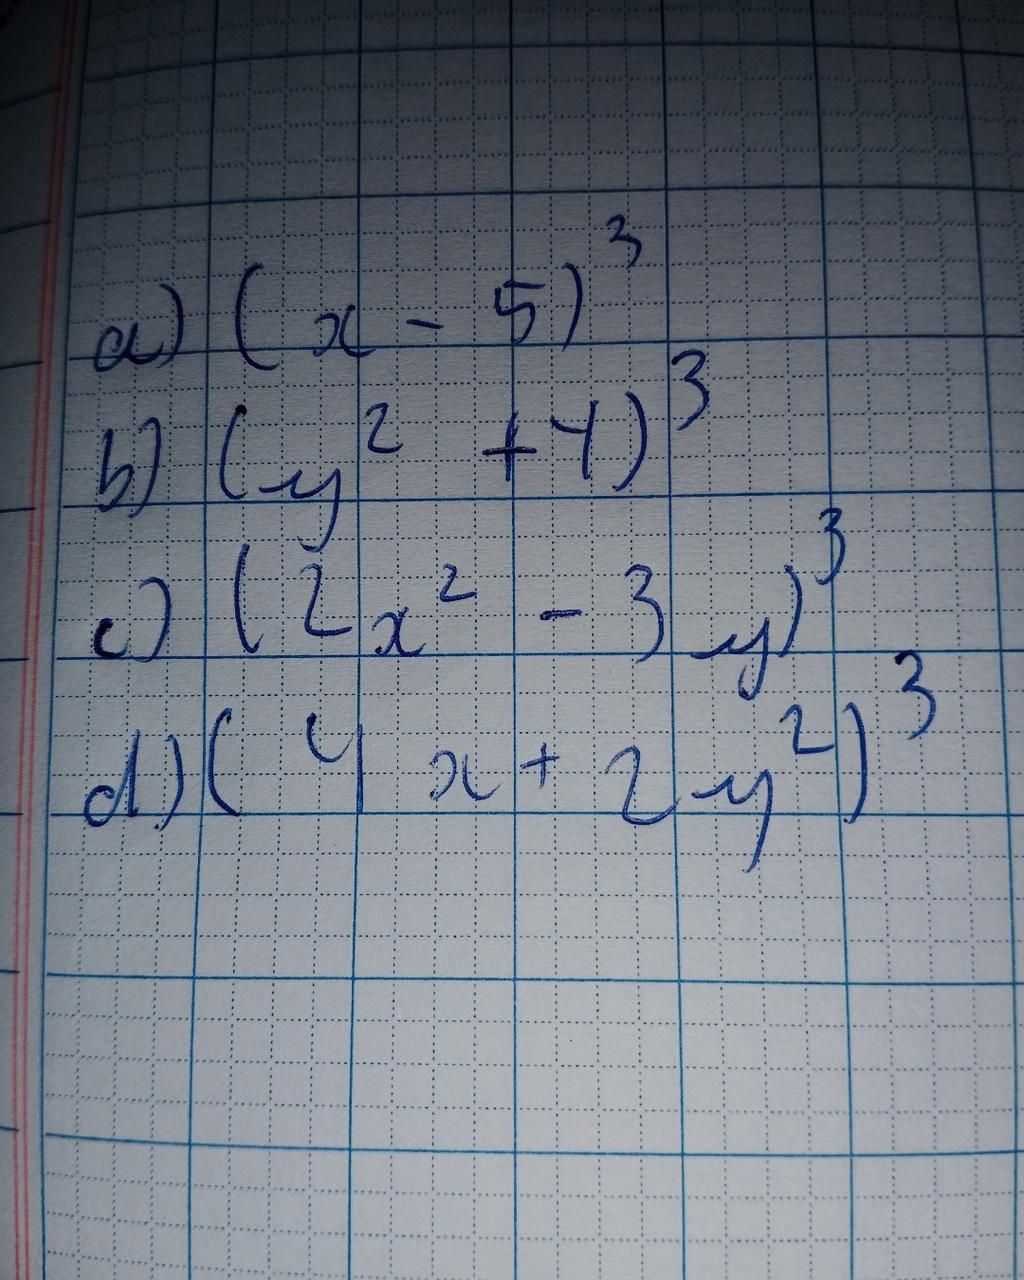 a) (x - 5)³
b) (y² + 4)³
c) (2x² - 3y)³
d) (4x + 2y²)³